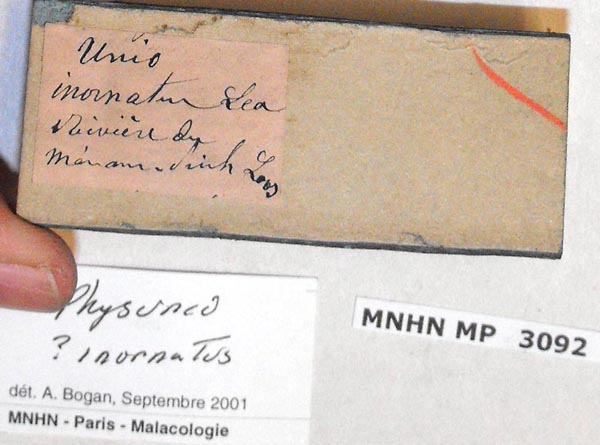 Unio
inornatus Lea
Rivière du
Ménam-Sinh Laos
Physunio
? inornatus
dét. A. Bogan, Septembre 2001
MNHN - Paris - Malacologie
MNHN MP 3092